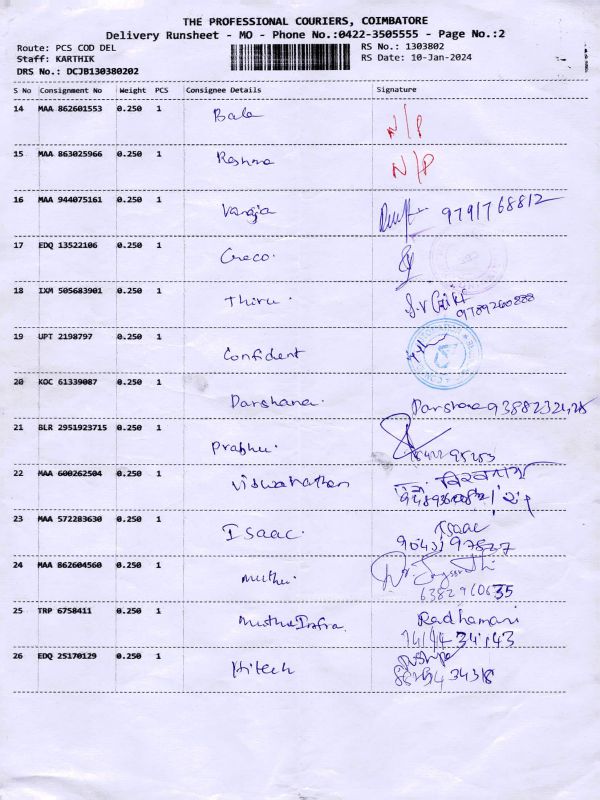 THE PROFESSIONAL COURIERS, COIMBATORE
Delivery Runsheet - MO - Phone No.:0422-3505555 - Page No.:2
Route: PCS COD DEL
RS No.: 1303802
Staff: KARTHIK
RS Date: 10-Jan-2024
DRS No.: DCJB130380202
S No Consignment No Weight PCS Consignee Details Signature
14 MAA 862601553 0.250 1 Bala N/P
15 MAA 863025966 0.250 1 Reshma N/P
16 MAA 944075161 0.250 1 Vanaja 9791768812
17 EDQ 13522106 0.250 1 Creco.
18 IXM 505683901 0.250 1 Thiru.
9789260888
19 UPT 2198797 0.250 1 Confident
20 KOC 61339087 0.250 1 Darshana. Darshana
21 BLR 2951923715 0.250 1 Prabhu.
22 MAA 600262504 0.250 1 Viswanathan
23 MAA 572283630 0.250 1 Isaac. Isaac
24 MAA 862604560 0.250 1 Muthu.
6382960635
25 TRP 6758411 0.250 1 Muthu Infra. Radhamani
26 EDQ 25170129 0.250 1 Hitech Pushpa